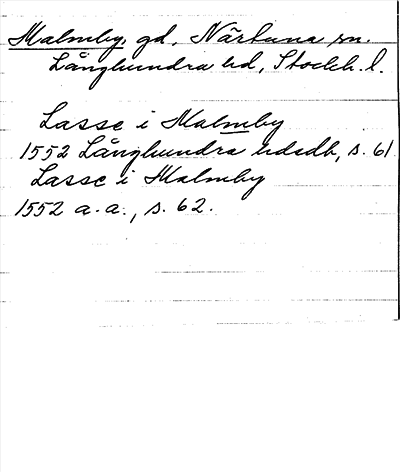 Malmby, gd, Närtuna sn.
Långhundra hd, Stockh. l.
Lasse i Malmby
1552 Långhundra hdsdb, s. 61
Lasse i Malmby
1552 a. a., s. 62.